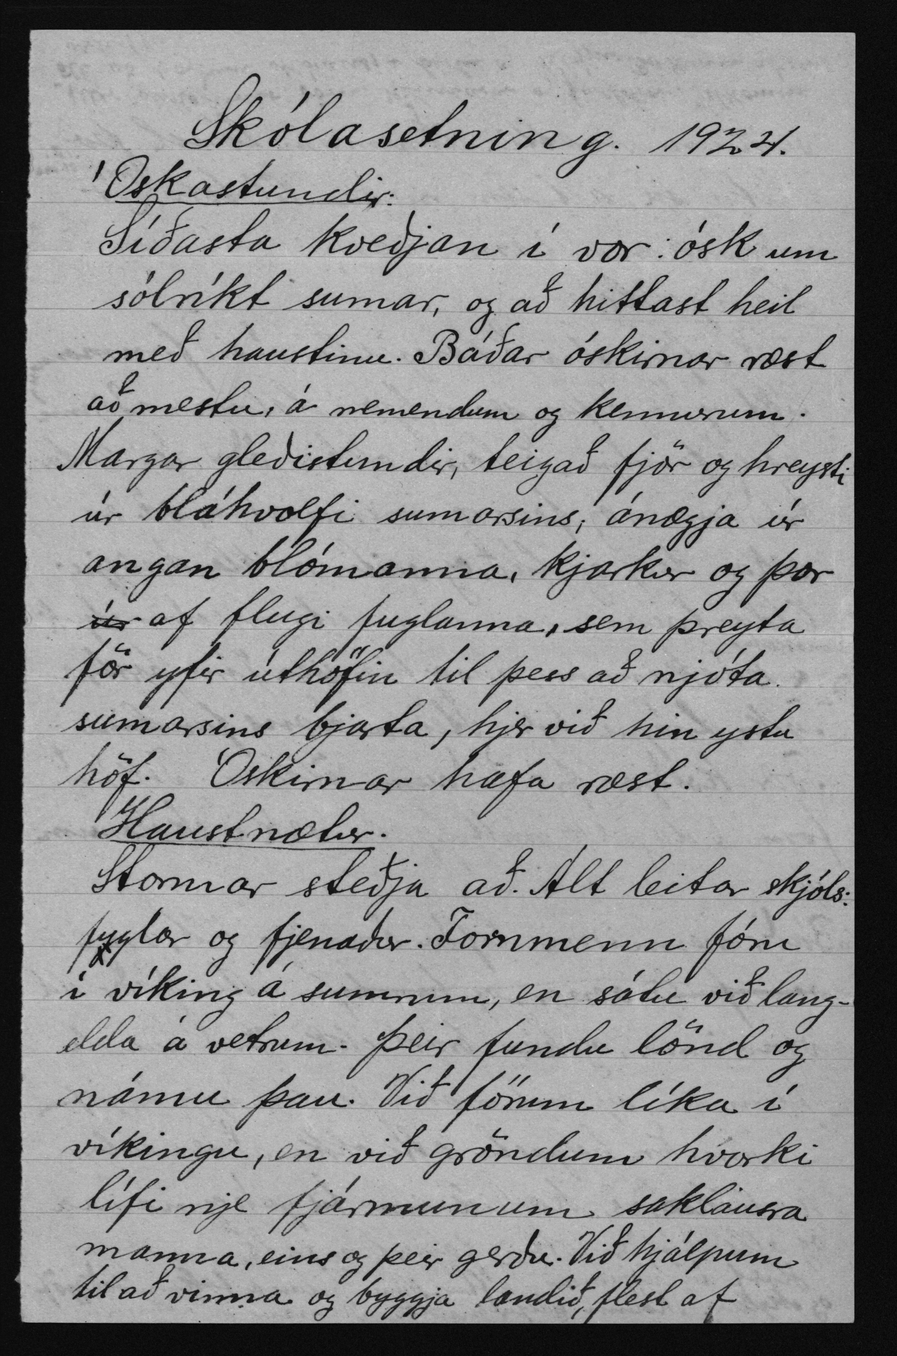 Skólasetning. 1924.
Óskastundir:
Síðasta kveðjan í vor: ósk um
sólríkt sumar, og að hittast heil
með haustinu. Báðar óskirnar ræst
að mestu, á nemendum og kennurum.
Margar gleðistundir, teigað fjör og hreysti
úr bláhvolfi sumarsins, ánægja úr
angan blómanna, kjarkur og þor
úr af flugi fuglanna, sem þreyta
för yfir úthöfin til þess að njóta
sumarsins bjarta, hjer við hin ystu
höf. Óskirnar hafa ræst.
Haustnætur.
Stormar steðja að. Alt leitar skjóls:
fuglar og fjenaður. Fornmenn fóru
í víking á sumrum, en sátu við lang-
elda á vetrum. Þeir fundu lönd og
námu þau. Við förum líka í
víkingu, en við gröndum hvorki
lífi nje fjármunum saklausra
manna, eins og þeir gerðu. Við hjálpum
til að vinna og byggja landið, flest af